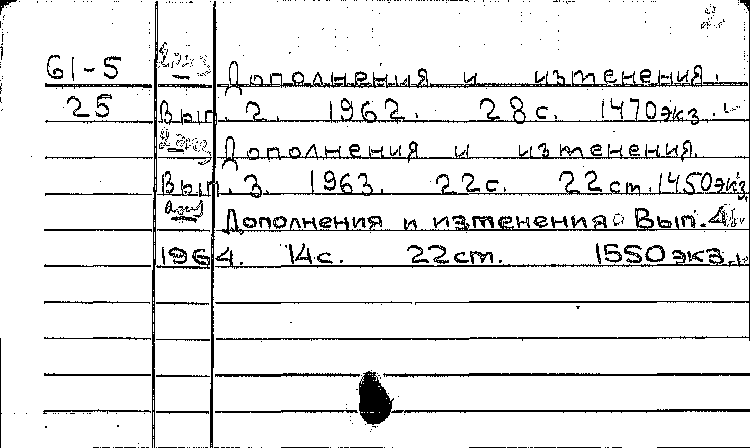 2.
61-5 2 экз Дополнения и изменения.
25 Вып. 2. 1962. 28 с. 1470 экз.
2 экз Дополнения и изменения.
Вып. 3. 1963. 22 с. 22 см. 1450 экз.
Дополнения и изменения. Вып. 4.
1964. 14 с. 22 см. 1550 экз.